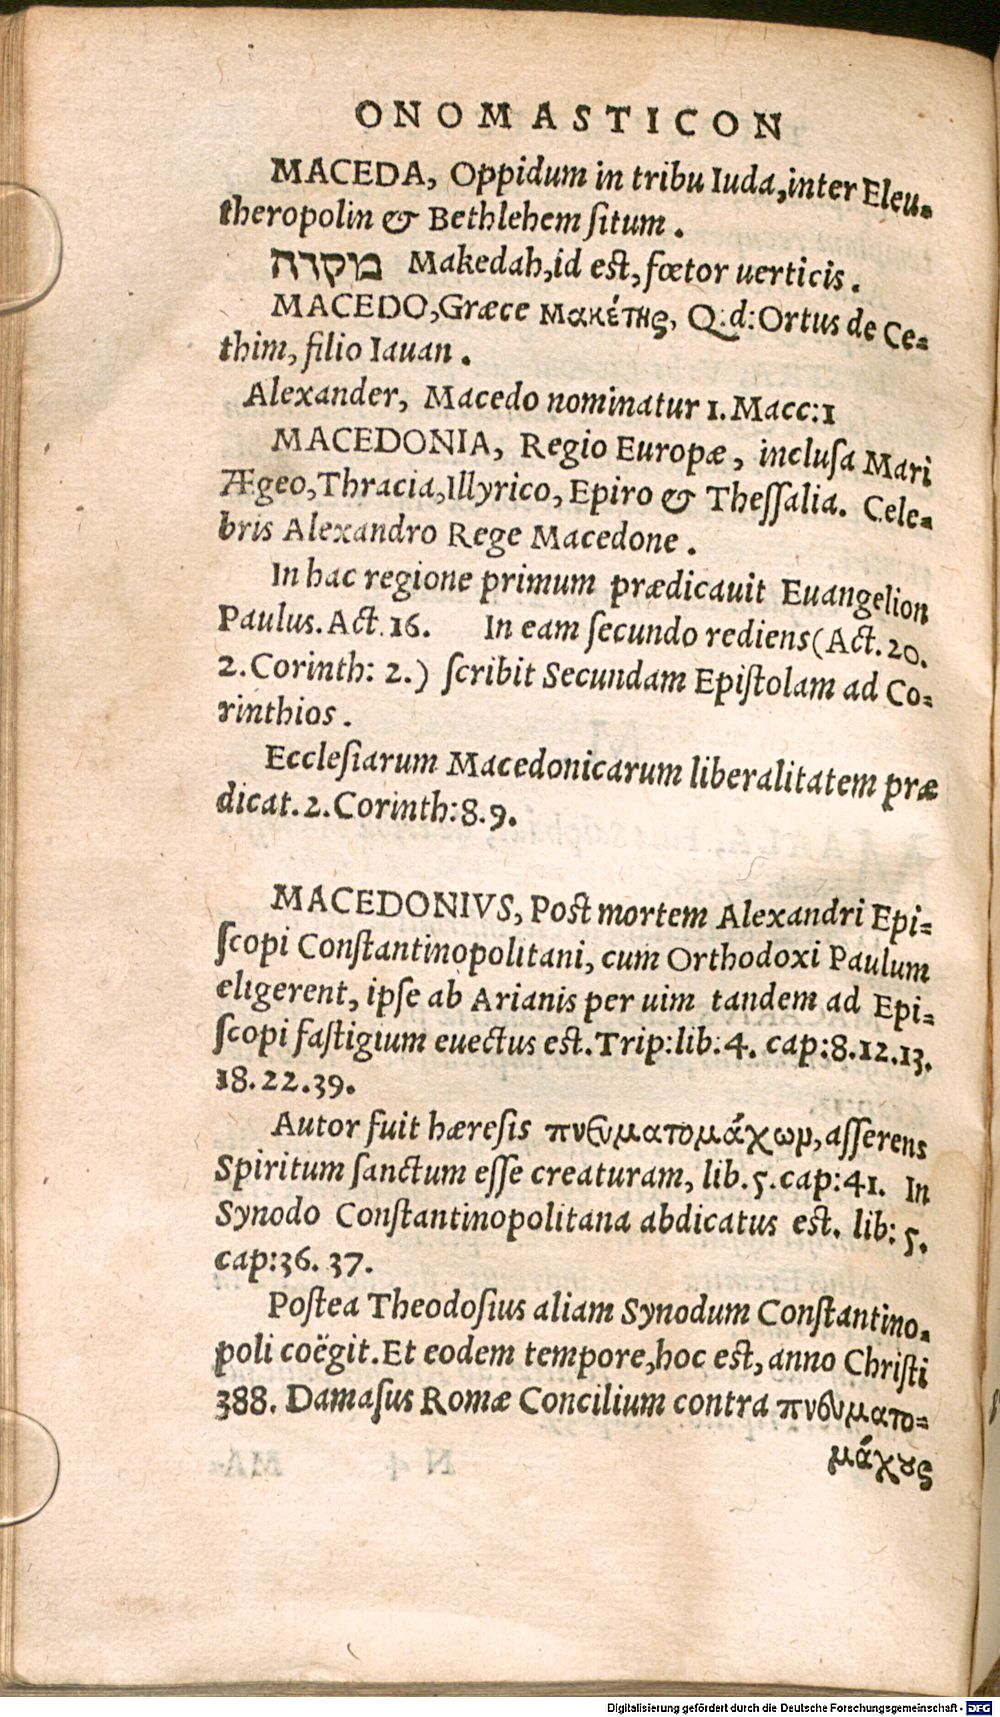 ONOMASTICON
MACEDA, Oppidum in tribu Iuda, inter Eleu-
theropolin & Bethlehem ſitum.
מקדה Makedah, id est, fœtor uerticis.
MACEDO, Græce μακέτης, Q.d: Ortus de Ce-
thim, filio Iauan.
Alexander, Macedo nominatur 1. Macc:1
MACEDONIA, Regio Europæ, incluſa Mari
Ægeo, Thracia, Illyrico, Epiro & Theſſalia. Cele-
bris Alexandro Rege Macedone.
In hac regione primum prædicauit Euangelion
Paulus. Act. 16. In eam ſecundo rediens (Act. 20.
2. Corinth: 2.) ſcribit Secundam Epiſtolam ad Co-
rinthios.
Eccleſiarum Macedonicarum liberalitatem præ
dicat. 2. Corinth: 8. 9.
MACEDONIVS, Post mortem Alexandri Epi-
ſcopi Conſtantinopolitani, cum Orthodoxi Paulum
eligerent, ipſe ab Arianis per uim tandem ad Epi-
ſcopi faſtigium euectus est. Trip: lib: 4. cap: 8. 12. 13.
18. 22. 39.
Autor fuit hæreſis πνευματομάχων, aſſerens
Spiritum ſanctum eſſe creaturam, lib. 5. cap: 41. In
Synodo Conſtantinopolitana abdicatus est. lib: 5.
cap: 36. 37.
Poſtea Theodoſius aliam Synodum Conſtantino-
poli coëgit. Et eodem tempore, hoc est, anno Chriſti
388. Damaſus Romæ Concilium contra πνευματο-
μάχους
Digitalisierung gefördert durch die Deutsche Forschungsgemeinschaft - DFG